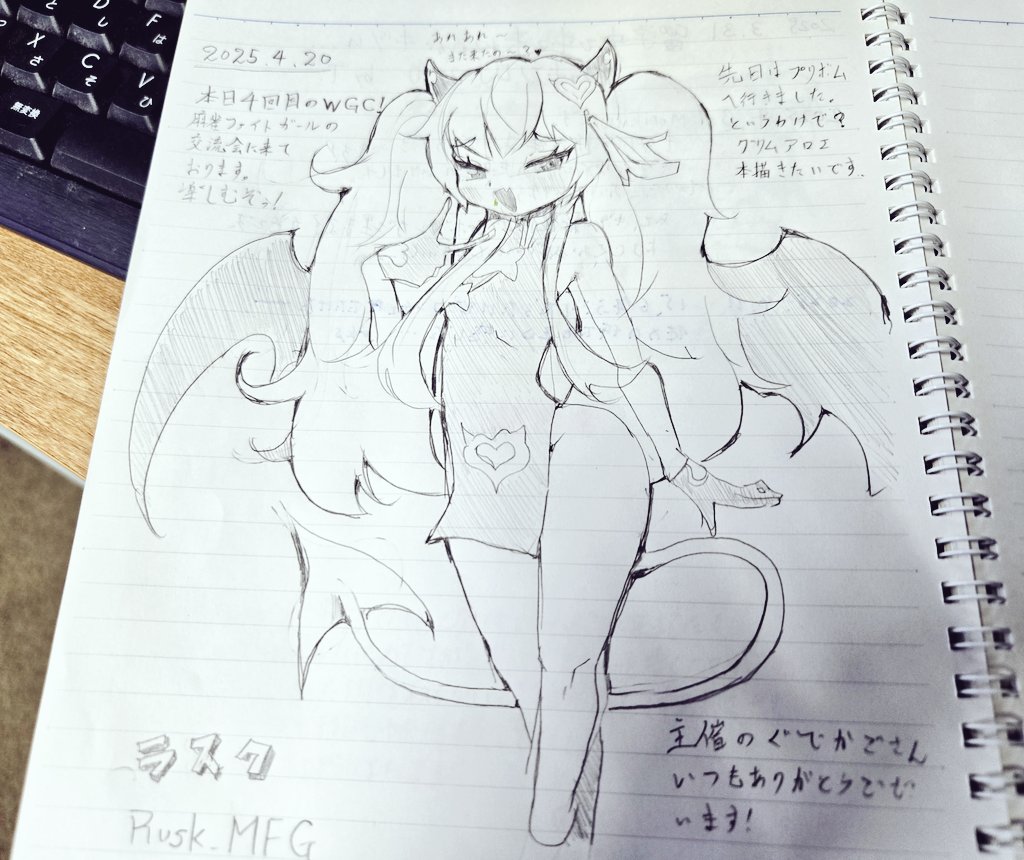 D
し
F
は
X
さ
C
そ
V
ひ
無変換
あれあれ～
また来たの～?♥
2025.4.20
本日4回目のWGC!
麻雀ファイトガールの
交流会に来て
おります。
楽しむぞぅ!
先日はプリズム
へ行きました。
というわけで?
グリムアロエ
本描きたいです.
ラスク
Rusk_MFG
主催のぐでかごさん
いつもありがとうござ
います!